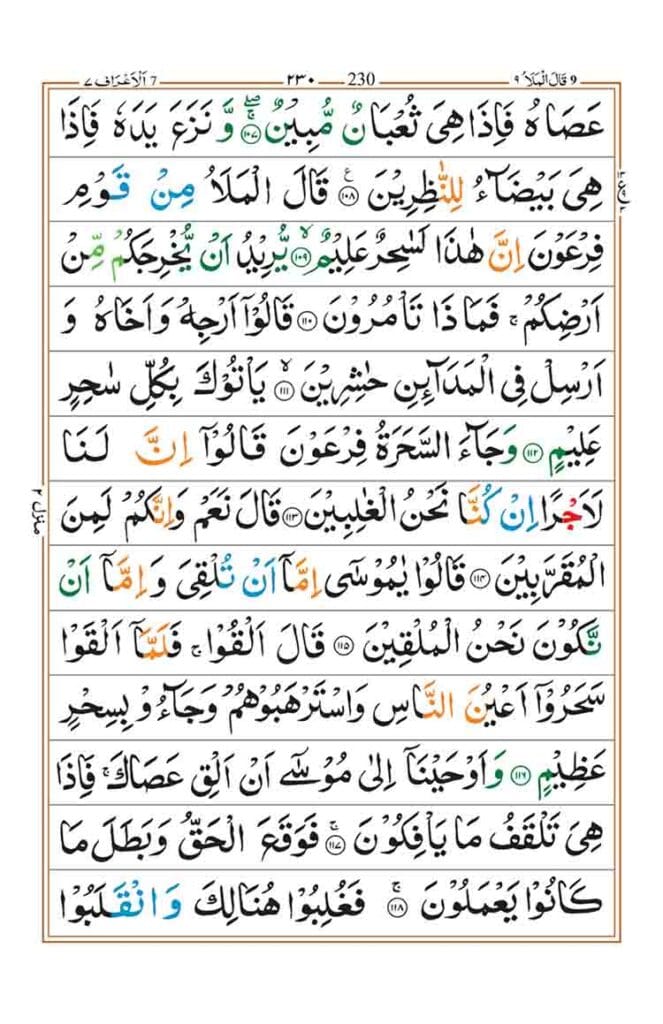 ٩ قَالَ الْمَلَاُ 9 230 ٢٣٠ 7 اَلْاَعْرَاف ٧
عَصَاهُ فَاِذَا هِىَ ثُعْبَانٌ مُّبِيْنٌ ۚۖ‏﴿۱۰۷﴾ وَّ نَزَعَ يَدَهٗ فَاِذَا
هِىَ بَيْضَآءُ لِلنّٰظِرِيْنَ ‏﴿۱۰۸﴾ قَالَ الْمَلَاُ مِنْ قَوْمِ
فِرْعَوْنَ اِنَّ هٰذَا لَسٰحِرٌ عَلِيْمٌ ۙ‏﴿۱۰۹﴾ يُّرِيْدُ اَنْ يُّخْرِجَكُمْ مِّنْ
اَرْضِكُمْ ۚ فَمَاذَا تَاْمُرُوْنَ ‏﴿۱۱۰﴾ قَالُوْۤا اَرْجِهْ وَاَخَاهُ وَ
اَرْسِلْ فِى الْمَدَآئِنِ حٰشِرِيْنَ ۙ‏﴿۱۱۱﴾ يَاْتُوْكَ بِكُلِّ سٰحِرٍ
عَلِيْمٍ ‏﴿۱۱۲﴾ وَجَآءَ السَّحَرَةُ فِرْعَوْنَ قَالُوْۤا اِنَّ لَنَا
لَاَجْرًا اِنْ كُنَّا نَحْنُ الْغٰلِبِيْنَ ‏﴿۱۱۳﴾ قَالَ نَعَمْ وَاِنَّكُمْ لَمِنَ
الْمُقَرَّبِيْنَ ‏﴿۱۱۴﴾ قَالُوْا يٰمُوْسٰٓى اِمَّاۤ اَنْ تُلْقِىَ وَاِمَّاۤ اَنْ
نَّكُوْنَ نَحْنُ الْمُلْقِيْنَ ‏﴿۱۱۵﴾ قَالَ اَلْقُوْا ۚ فَلَمَّاۤ اَلْقَوْا
سَحَرُوْۤا اَعْيُنَ النَّاسِ وَاسْتَرْهَبُوْهُمْ وَجَآءُوْ بِسِحْرٍ
عَظِيْمٍ ‏﴿۱۱۶﴾ وَاَوْحَيْنَاۤ اِلٰى مُوْسٰٓى اَنْ اَلْقِ عَصَاكَ ۚ فَاِذَا
هِىَ تَلْقَفُ مَا يَاْفِكُوْنَ ۚ‏﴿۱۱۷﴾ فَوَقَعَ الْحَقُّ وَبَطَلَ مَا
كَانُوْا يَعْمَلُوْنَ ۚ‏﴿۱۱۸﴾ فَغُلِبُوْا هُنَالِكَ وَانْقَلَبُوْا
منزل ٢